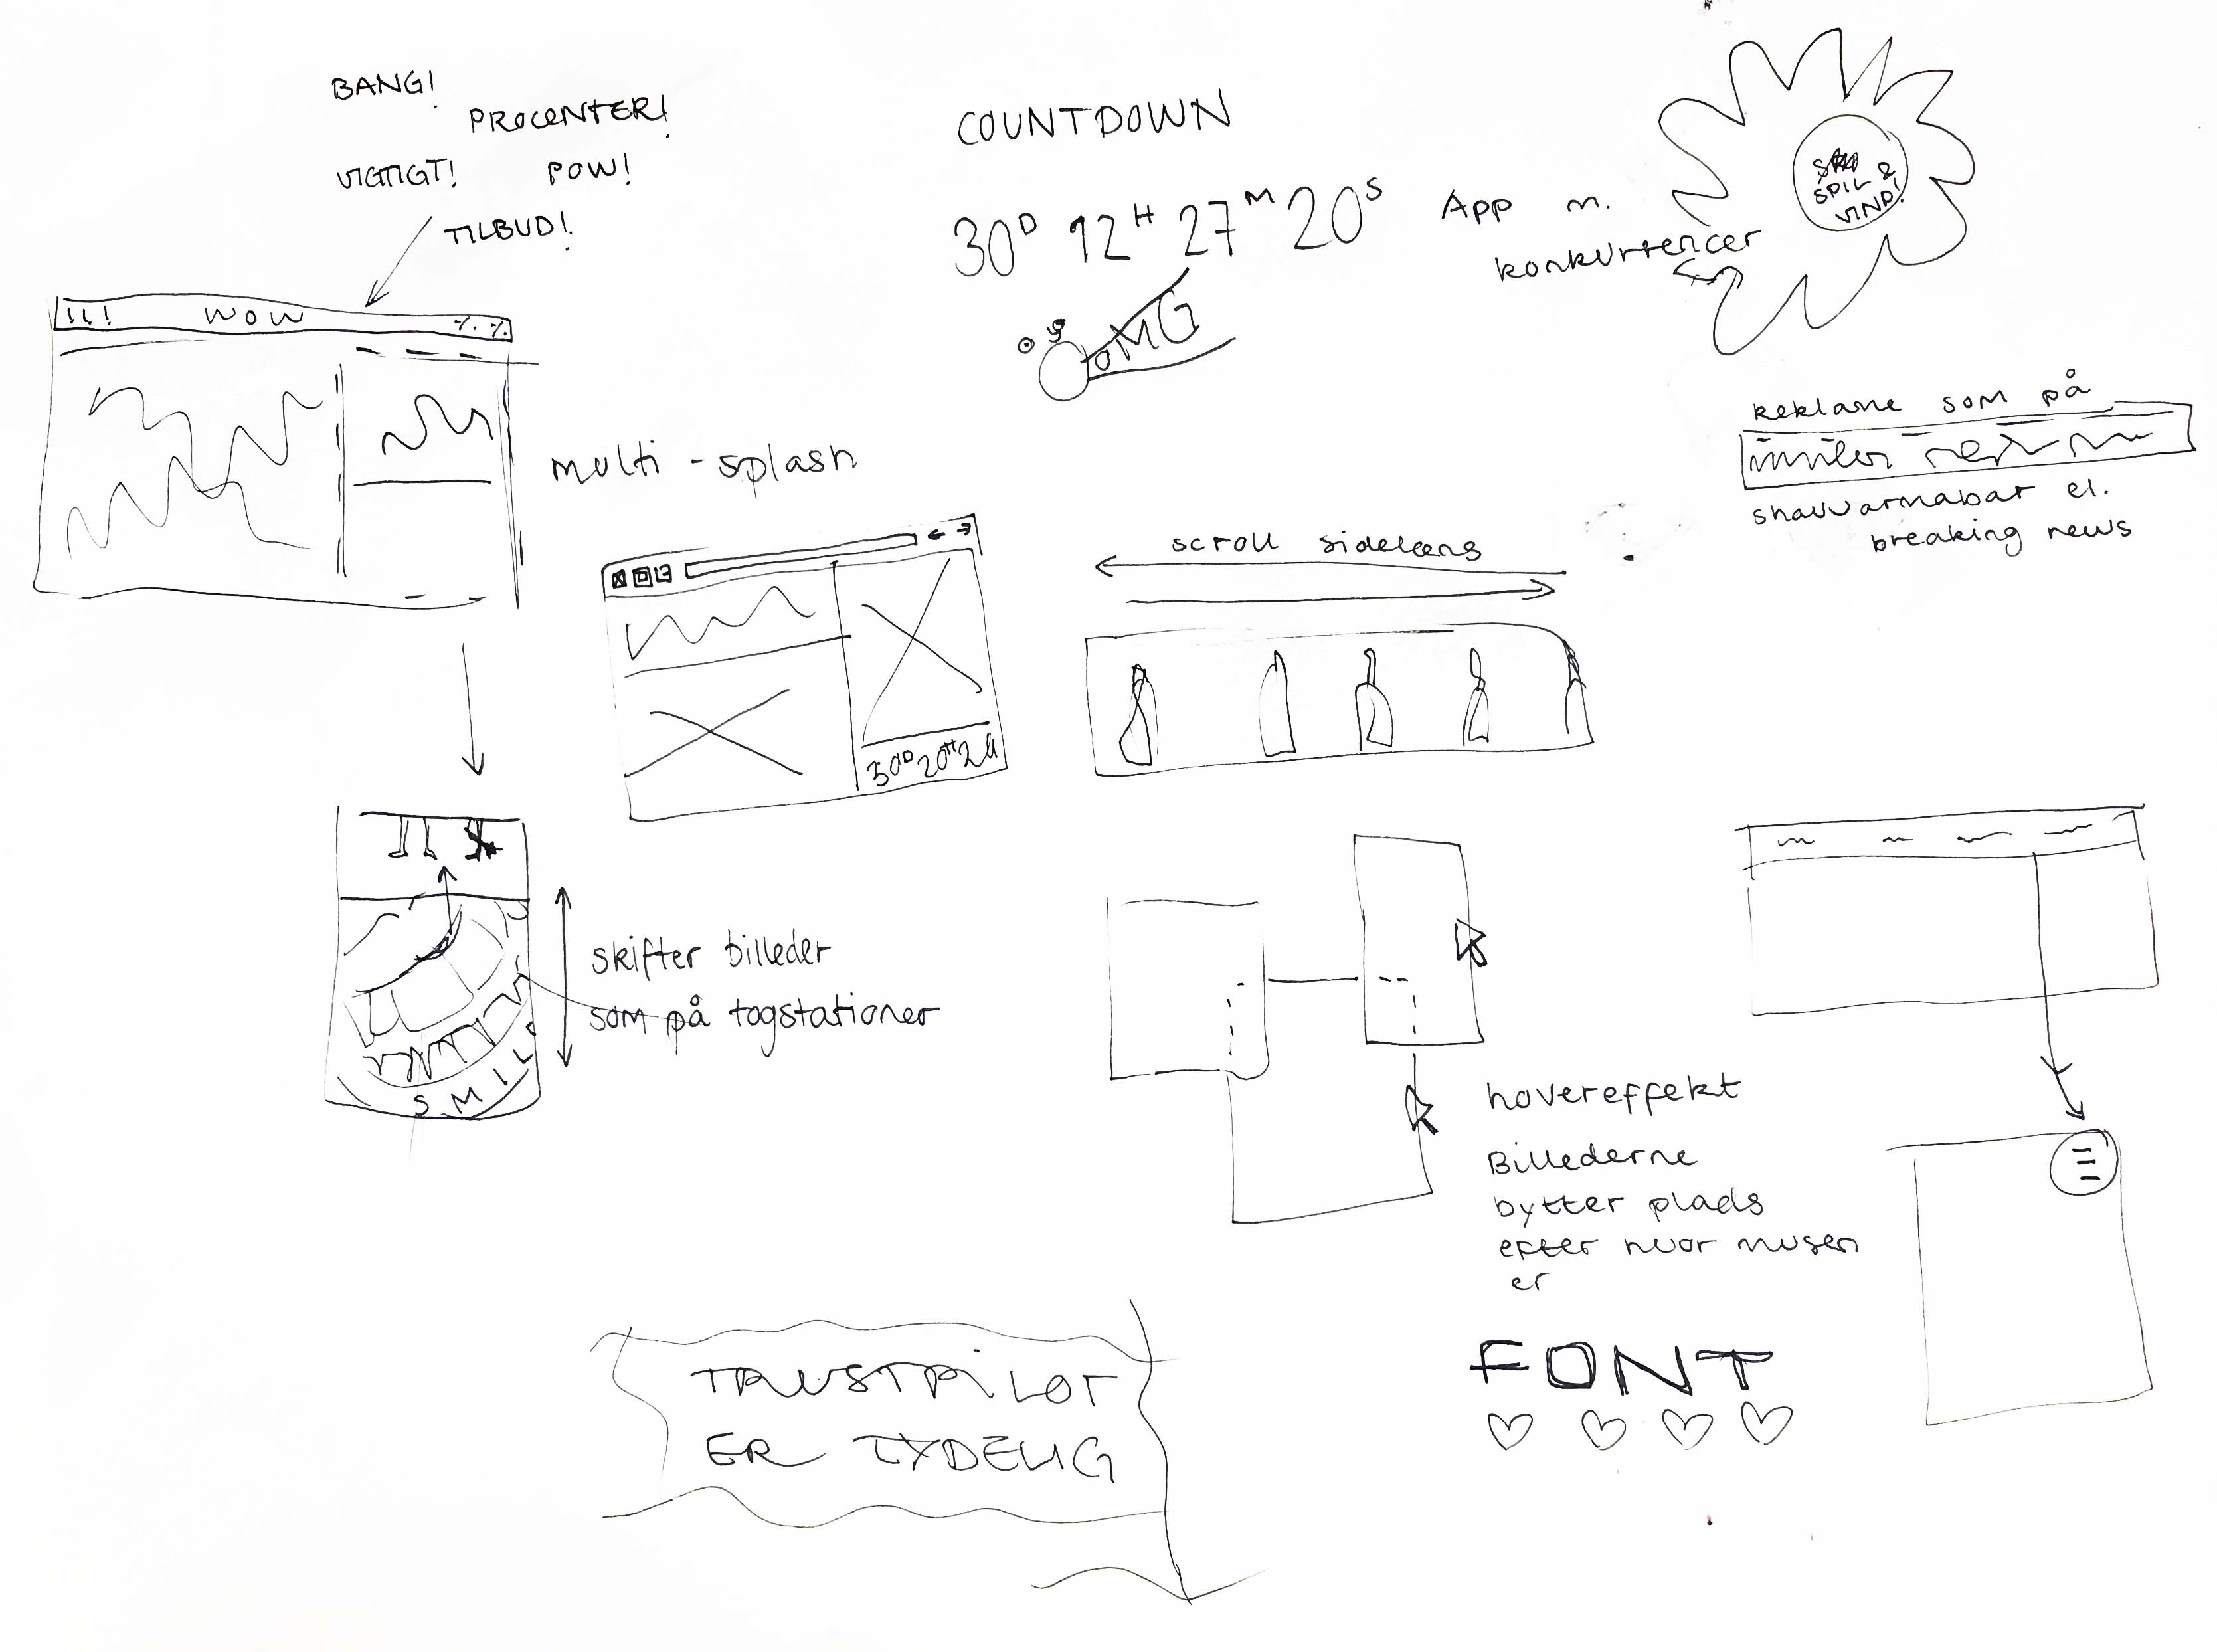 BANG!
PROCENTER!
VIGTIGT!
POW!
TILBUD!
!!!
WOW
%
multi - splash
COUNTDOWN
30D 12H 27M 20S
OMG
App m.
konkurrencer
SPIL &
VIND!
Reklame som på
shawarmabar el.
breaking news
scroll sidelæns
skifter billeder
som på togstationer
SMIL
hovereffekt
Billederne
bytter plads
efter hvor musen
er
FONT
TRUSTPILOT
ER TYDELIG